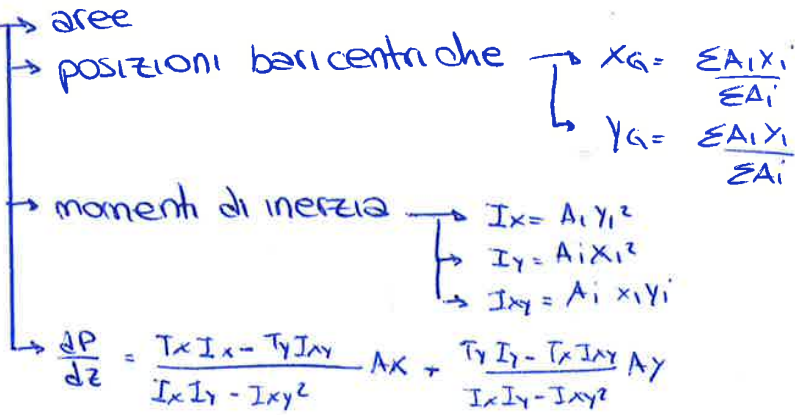 → aree
→ posizioni baricentriche → XG = ΣAiXi / ΣAi
→ YG = ΣAiYi / ΣAi
→ momenti di inerzia → Ix = Ai Yi²
→ Iy = Ai Xi²
→ Ixy = Ai xi yi
→ dP/dz = (Tx Ix - Ty Ixy) / (Ix Iy - Ixy²) AX + (Ty Iy - Tx Ixy) / (Ix Iy - Ixy²) AY